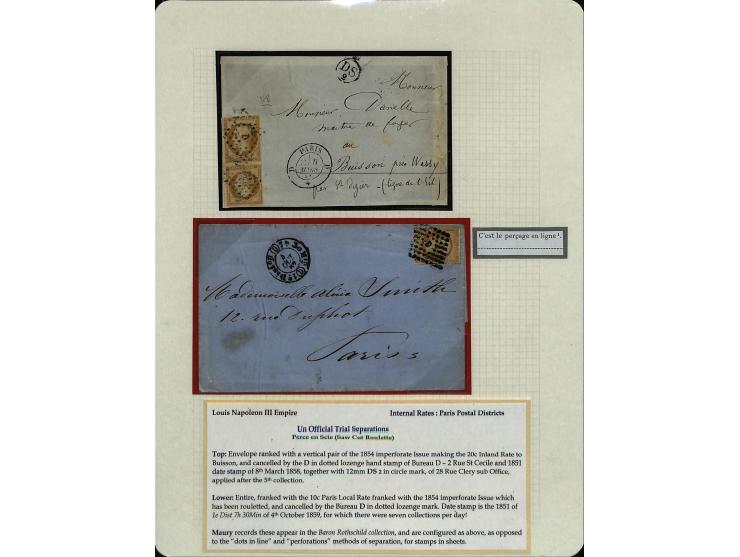 DS
2
Monsieur
Monsieur Danelle
maitre de forges
au
Buisson près Wassy
par St Dizier – (ligne de l'Est)
D PARIS D
8
MARS
C'est le perçage en ligne¹.
Mademoiselle Smith
12. rue Duphot
Paris
Louis Napoleon III Empire Internal Rates : Paris Postal Districts
Un Official Trial Separations
Perce en Scie (Saw Cut Roulette)
Top: Envelope ranked with a vertical pair of the 1854 imperforate Issue making the 20c Inland Rate to
Buisson, and cancelled by the D in dotted lozenge hand stamp of Bureau D – 2 Rue St Cecile and 1851
date stamp of 8th March 1858, together with 12mm DS 2 in circle mark, of 28 Rue Clery sub Office,
applied after the 5th collection.
Lower: Entire, franked with the 10c Paris Local Rate franked with the 1854 imperforate Issue which
has been rouletted, and cancelled by the Bureau D in dotted lozenge mark. Date stamp is the 1851 of
1e Dist 7h 30Min of 4th October 1859, for which there were seven collections per day!
Maury records these appear in the Baron Rothschild collection, and are configured as above, as opposed
to the "dots in line" and "perforations" methods of separation, for stamps in sheets.